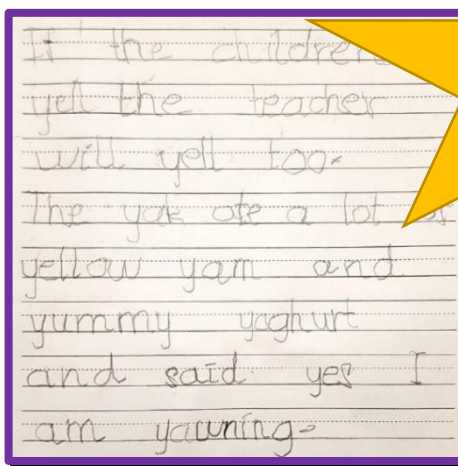 If the children
yell the teacher
will yell too.
The yak ate a lot of
yellow yam and
yummy yoghurt
and said yes I
am yawning.